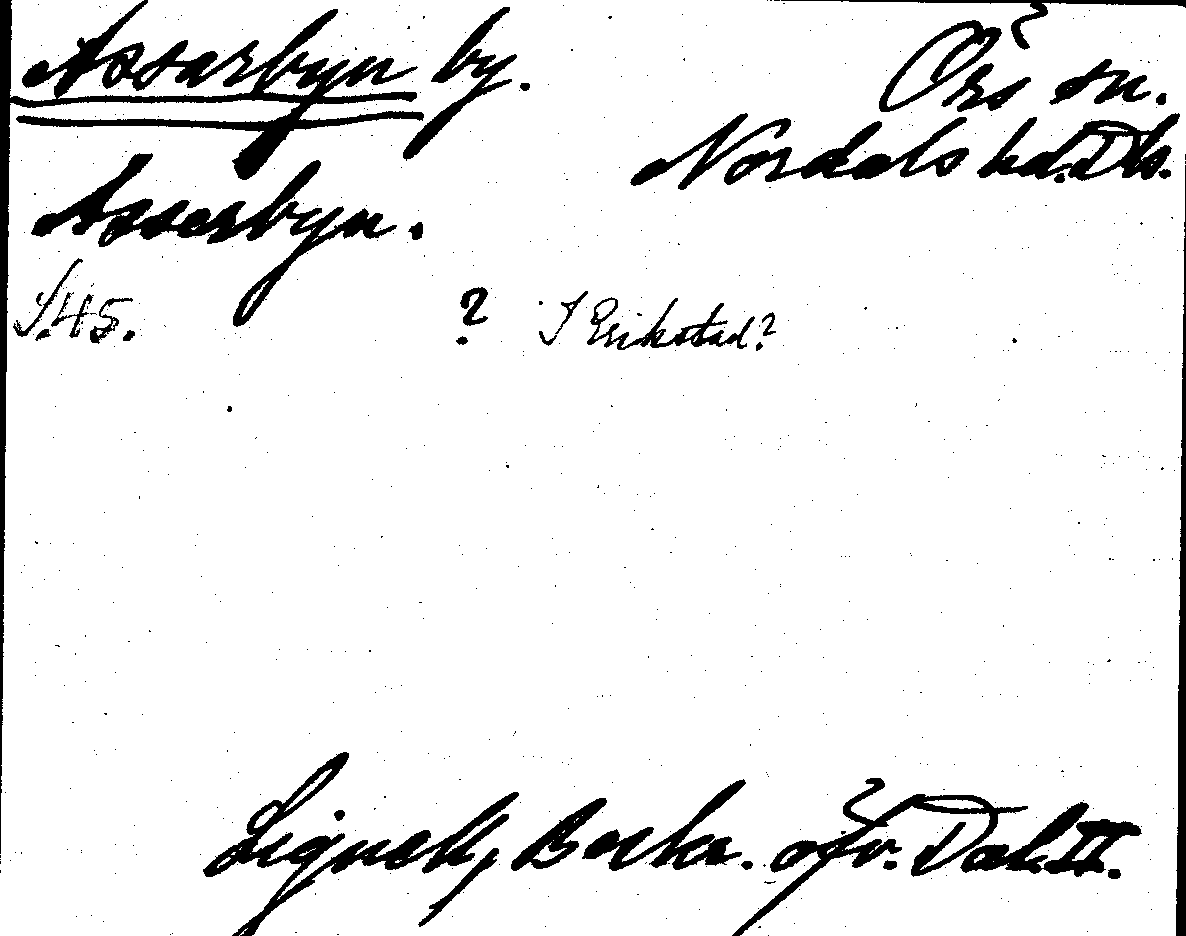 Assarbyn by.
Örs sn.
Nordals hd. Dls.
Assarbyn.
S.45. ? I Erikstad?
Lignell, Beskr. öfv. Dal. II.